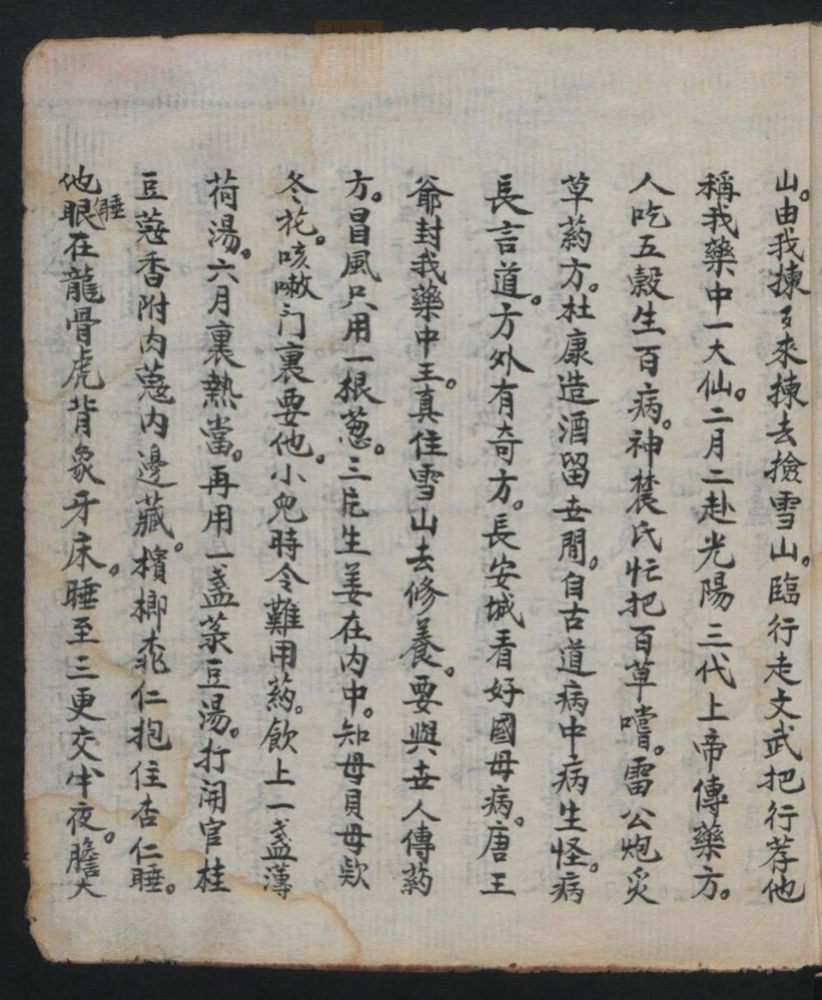 山。由我揀々來揀去撿雪山。臨行走文武把行荐他
稱我藥中一大仙。二月二赴光陽三代上帝傳藥方。
人吃五穀生百病。神農氏忙把百草嚐。雷公炮炙
草药方。杜康造酒留世間。自古道病中病生怪。病
長言道。方外有奇方。長安城看好國母病。唐王
爺封我藥中王。真住雪山去修養。要與世人傳药
方。昌風只用一根葱。三片生姜在内中。知母貝母欵
冬花。咳嗽门裏要他。小兒時令難用药。飲上一盞薄
荷湯。六月裏熱當。再用一盞菉豆湯。打開官桂
豆蔻香附肉蔻内邊藏。檳榔桃仁抱住杏仁睡。
他眼睡在龍骨虎背象牙床。睡至三更交半夜。膽大